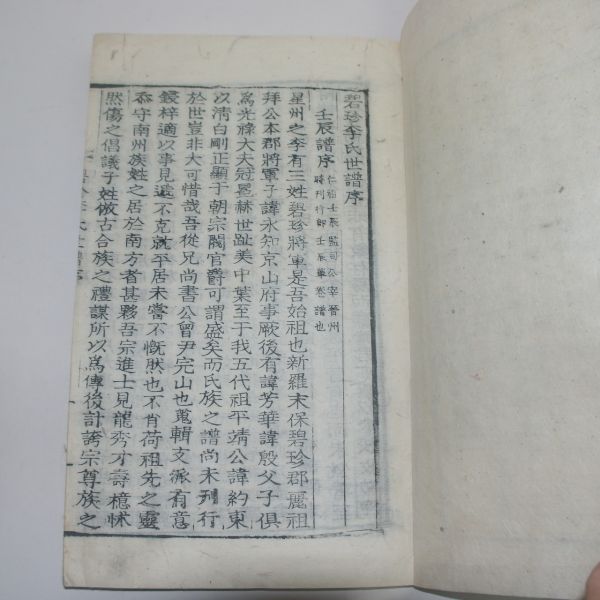 碧珍李氏世譜序
壬辰譜序
仁祖壬辰監司公宰晉州
時刊行卽壬辰單卷譜也
星州之李有三姓碧珍將軍是吾始祖也新羅末保碧珍郡麗祖
拜公本郡將軍子諱永知京山府事厥後有諱芳華諱殷父子俱
爲光祿大夫冠冕赫世趾美中葉至于我五代祖平靖公諱約東
以淸白剛正顯于朝宗閥官爵可謂盛矣而氏族之譜尚未刊行
於世豈非大可惜哉吾從兄尚書公曾尹完山也蒐輯支派有意
鋟梓適以事見遞不克就平居未嘗不慨然也不肖荷祖先之靈
忝守南州族姓之居於南方者甚夥吾宗進士見龍秀才壽檍怵
然傷之倡議子姓倣古合族之禮謀所以爲傳後計誘宗尊族之